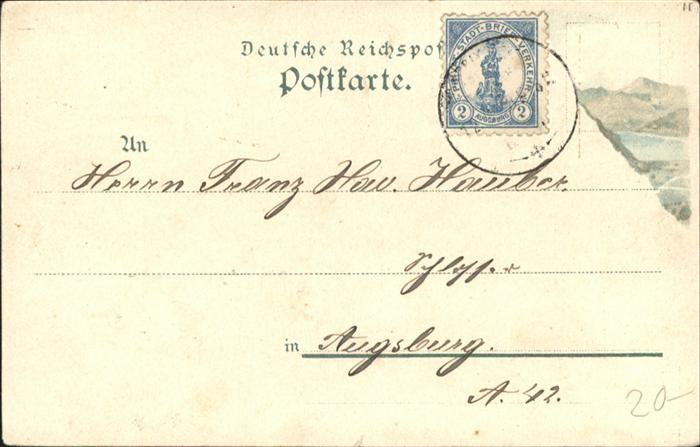 Deutsche Reichspost
Postkarte.
PRIVAT-STADT-BRIEF-VERKEHR
2 AUGSBURG 2
An
Herrn Franz Xav. Hauber.
Schlosser
in Augsburg.
A. 42.
20-